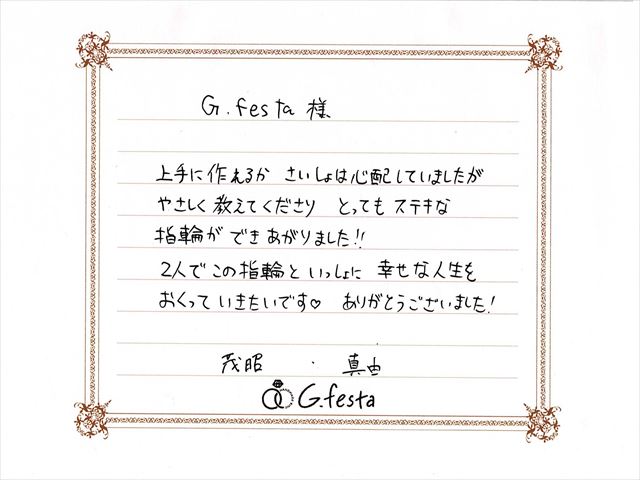 G.festa 様
上手に作れるか さいしょは心配していましたが
やさしく教えてくださり とってもステキな
指輪ができあがりました!!
2人でこの指輪といっしょに 幸せな人生を
おくっていきたいです♡ ありがとうございました!
茂昭 ・ 真由
G.festa